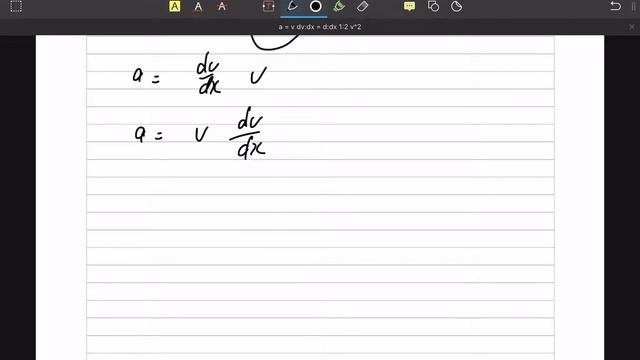 a = v dv:dx = d:dx 1:2 v^2
a = dv/dx v
a = v dv/dx